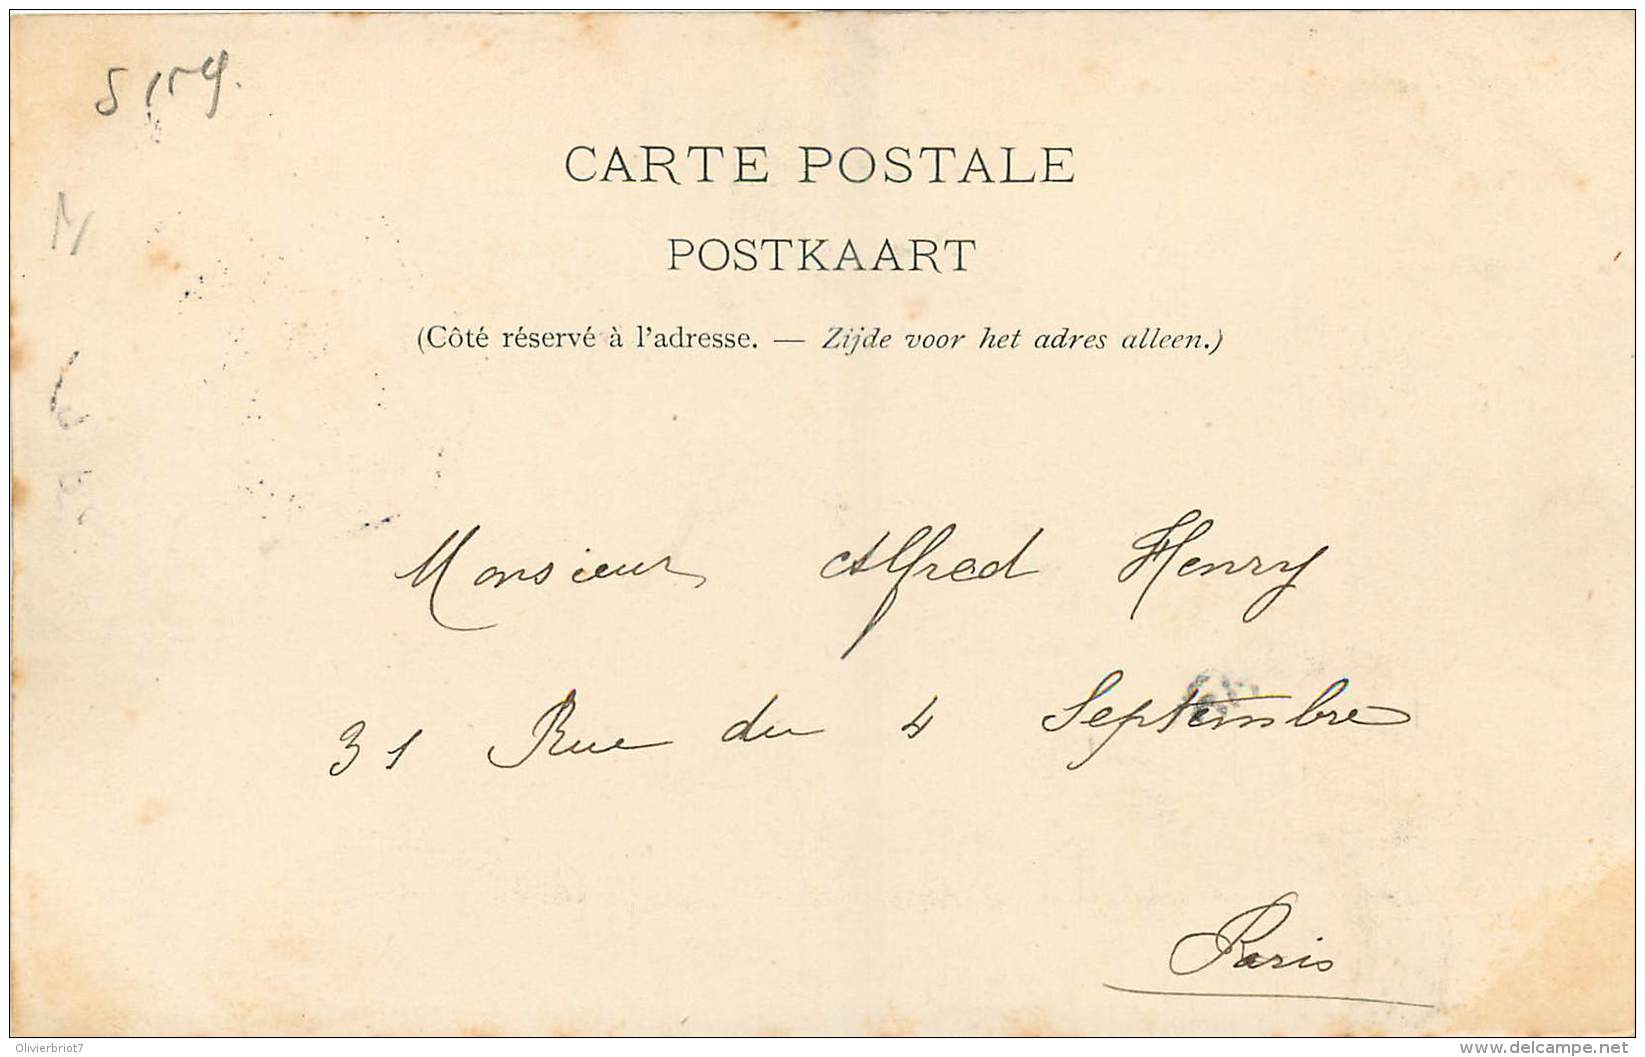 CARTE POSTALE
POSTKAART
(Côté réservé à l'adresse. — Zijde voor het adres alleen.)
Monsieur Alfred Henry
31 Rue du 4 Septembre
Paris
Olivierbriot7
www.delcampe.net